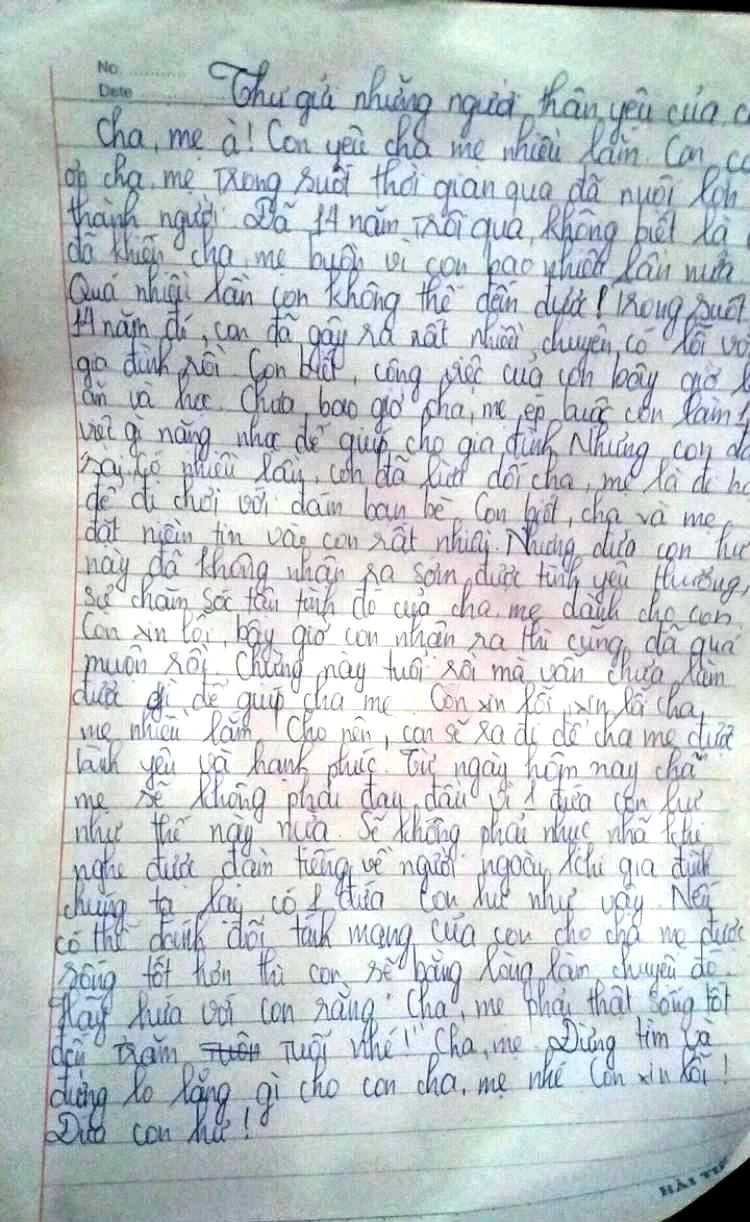 No
Date
Thư gửi những người thân yêu của c
Cha, mẹ à! Con yêu cha mẹ nhiều lắm. Con cả
ơn cha, mẹ trong suốt thời gian qua đã nuôi lớn
thành người. Đã 14 năm trôi qua, không biết là
đã khiến cha, mẹ buồn vì con bao nhiêu lần nữa
Quá nhiều lần con không thể đếm được! Trong suốt
14 năm đó, con đã gây ra rất nhiều chuyện có lỗi vớ
gia đình rồi Con biết, công việc của con bây giờ l
ăn và học. Chưa bao giờ cha, mẹ ép buộc con làm 1
việc gì nặng nhọc để giúp cho gia đình. Nhưng con đã
có nhiều lần, con đã lừa dối cha, mẹ là đi họ
để đi chơi với đám bạn bè. Con biết, cha và mẹ
đặt niềm tin vào con rất nhiều. Nhưng đứa con hư
này đã không nhận ra sớm được tình yêu thương,
sự chăm sóc tận tình đó của cha, mẹ dành cho con.
Con xin lỗi, bây giờ con nhận ra thì cũng đã quá
muộn rồi. Chừng này tuổi rồi mà vẫn chưa làm
được gì để giúp cha mẹ. Con xin lỗi, xin lỗi cha,
mẹ nhiều lắm. Cho nên, con sẽ ra đi để cha mẹ được
yêu và hạnh phúc. Từ ngày hôm nay cha
mẹ sẽ không phải đau đầu vì 1 đứa con hư
như thế này nữa. Sẽ không phải nhục nhã khi
nghe được đàm tiếng về người ngoài khi gia đình
chúng ta lại có 1 đứa con hư như vậy. Nếu
có thể đánh đổi tánh mạng của con cho cha mẹ được
sống tốt hơn thì con sẽ bằng lòng làm chuyện đó.
Hãy hứa với con rằng "Cha, mẹ phải thật sống tốt
đến trăm tuổi nhé!" Cha, mẹ. Đừng tìm và
đừng lo lắng gì cho con cha, mẹ nhé. Con xin lỗi!
Đứa con hư!